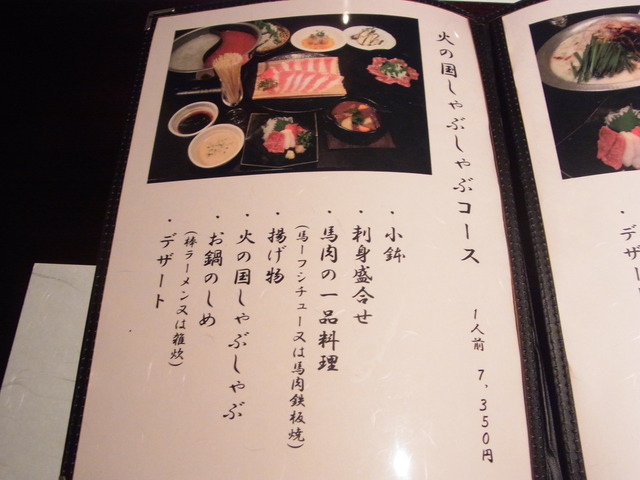 火の国しゃぶしゃぶコース
1人前 7,350円
・小鉢
・刺身盛合せ
・馬肉の一品料理
(馬ーフシチュー又は馬肉鉄板焼)
・揚げ物
・火の国しゃぶしゃぶ
・お鍋のしめ
(棒ラーメン又は雑炊)
・デザート
・デザ